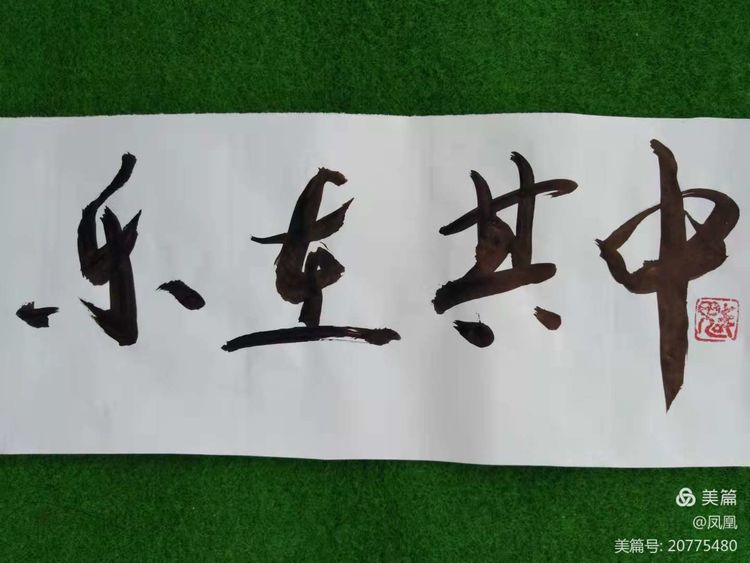 乐在其中
美篇
@凤凰
美篇号: 20775480